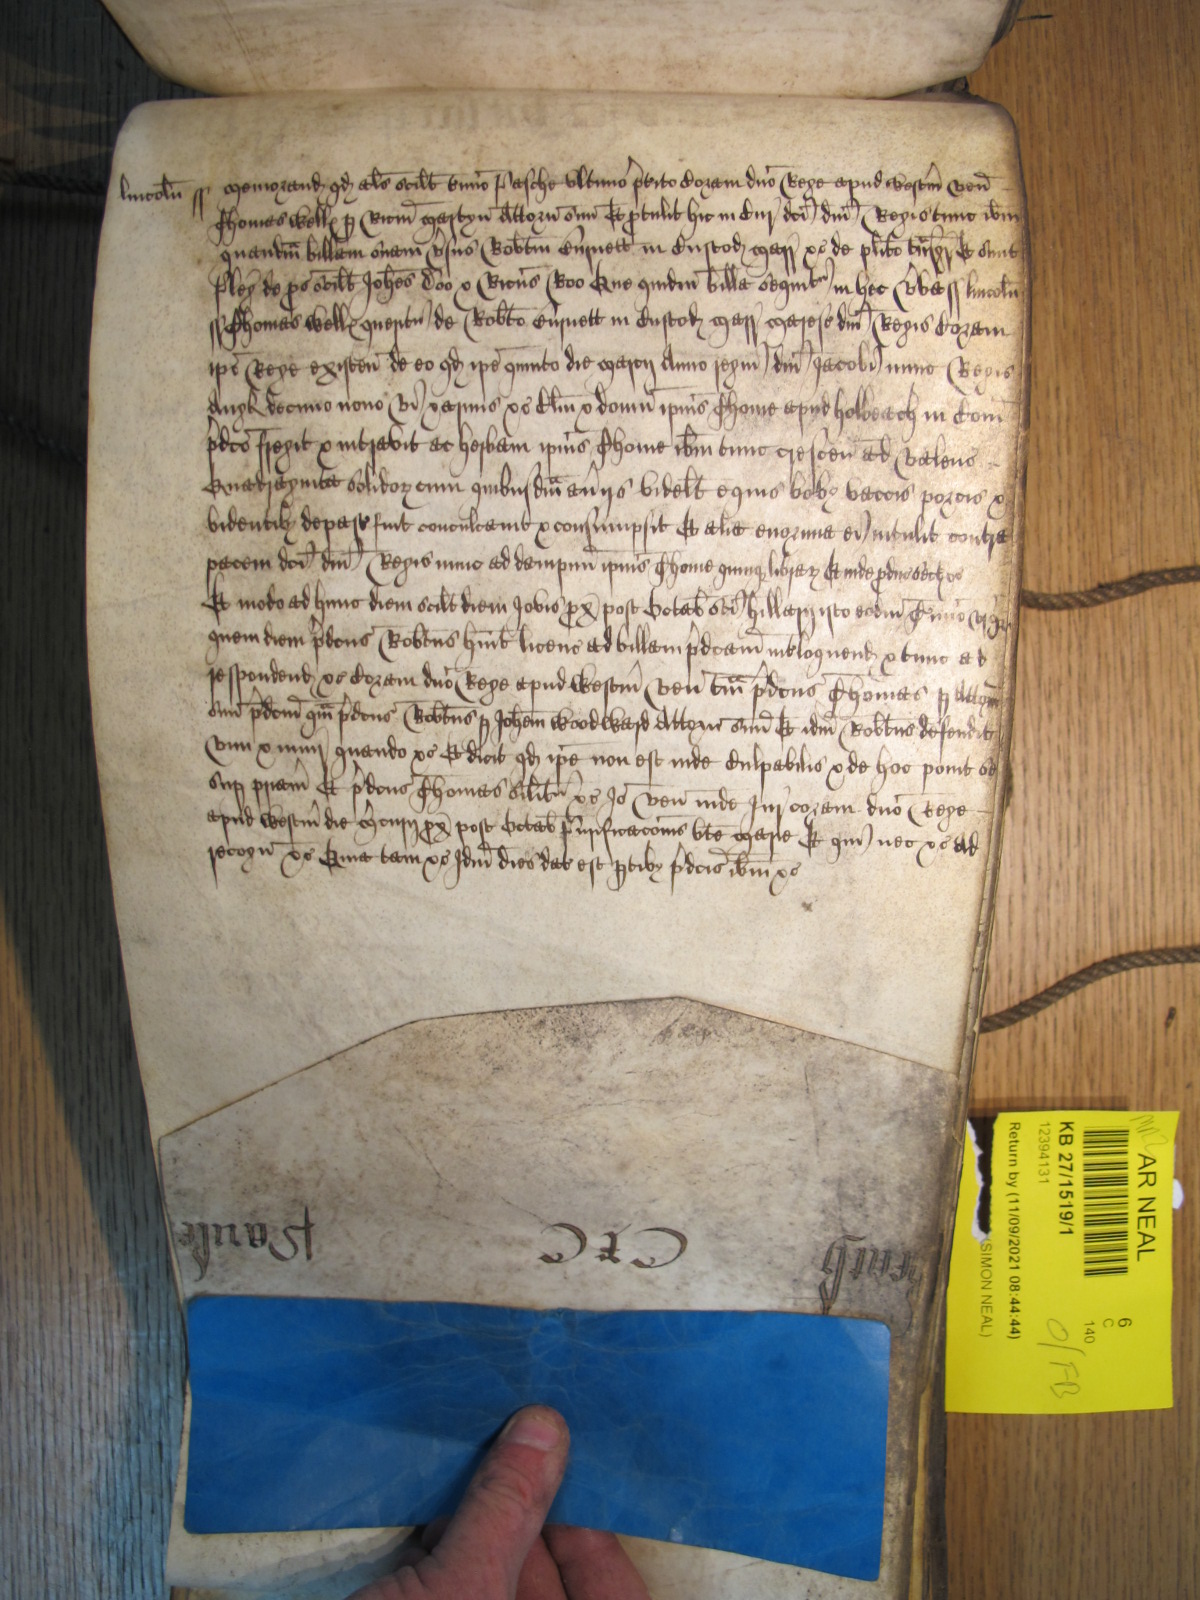 Lincoln ss Memorand qd als scilt t'mino Pasche ultimo p'terito Coram dno Rege apud Westm ven
Thomas Well p Ricm Martyn Attorn suu Et ptulit hic in Cur dci dni Regis tunc ibm
quandm billam suam v'sus Robtm in Custod Marr &c de plito t'nsgr Et sunt
pleg de ps scilt Johes Doo & Ricus Roo Que quidm billa sequit' in hec v'ba ss Lincoln
ss Thomas Well querit' de Robto in Custod Marr Maresc dni Regis Coram
ipo Rege existen de eo qd ipe quinto die Marcii Anno regni dni Jacobi nunc Regis
Angl decimo nono vi & armis &c Clm & domu ipius Thome apud Holbeach in Com
p'dco fregit & intravit ac herbam ipius Thome ibm tunc crescen ad valenc
Quadraginta solidor cum quibusdm av'iis videlt equis bobz vaccis porcis &
bidentibz depast fuit conculcavit & consumpsit Et alia enormia ei intulit contra
pacem dci dni Regis nunc ad dampnu ipius Thome quinqz librar Et inde pduc sectam &c
Et modo ad hunc diem scilt diem Jovis px post Octab sci Hillarii isto eodm T'mino usqz
quem diem p'dcus Robtus huit licenc ad billam p'dcam int'loquend & tunc ad
respondend &c Coram dno Rege apud Westm ven tam p'dcus Thomas p Attorn
suu p'dcm qm p'dcus Robtus p Johem Woodward Attorn suu Et idm Robtus defendit
vim & iniur quando &c Et dicit qd ipe non est inde Culpabilis & de hoc ponit se
sup pr'iam Et p'dcus Thomas silit' &c Io ven inde Jur coram dno Rege
apud Westm die M'curii px post Octab Purificacois bte Marie Et qui nec &c ad
recogn &c Quia tam &c Idm dies dat est ptibz p'dcis ibm &c
AR NEAL
KB 27/1519/1
12394131
Return by (11/09/2021 08:44:44)
(SIMON NEAL)
6
C
140
O/FB